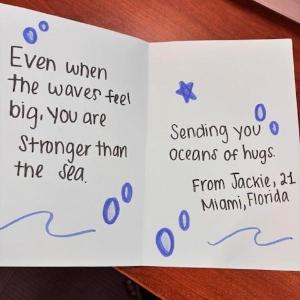 Even when
the waves feel
big, you are
stronger than
the sea.
Sending you
oceans of hugs.
From Jackie, 21
Miami, Florida